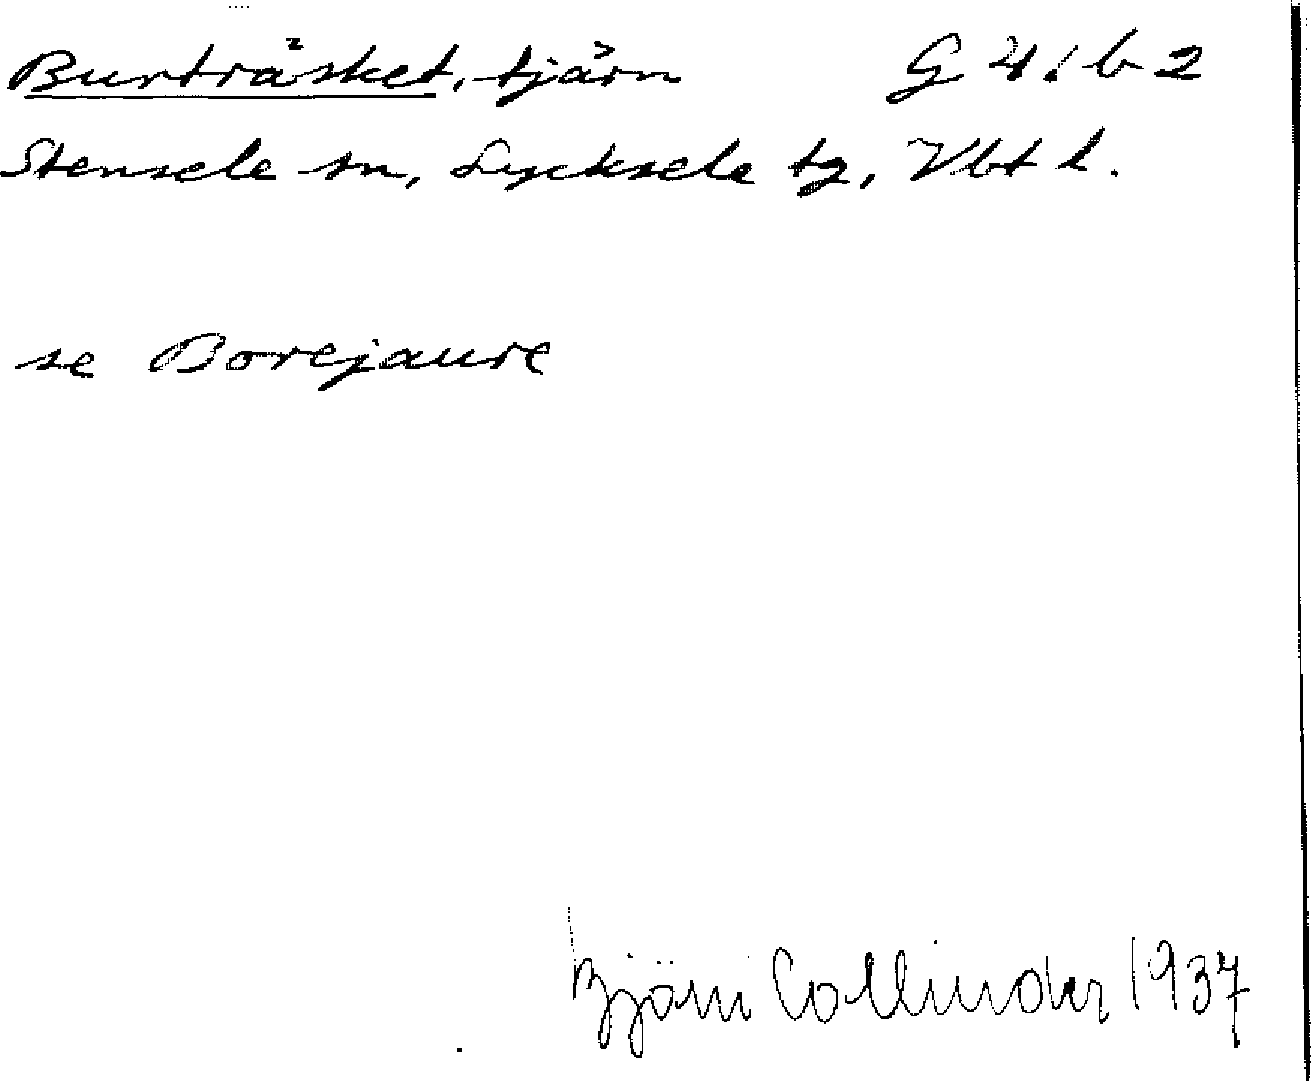 Burträsket, tjärn G 4 i b 2
Stensele sn, Lycksele tg, Vbt l.
se Borejaure
Björn Collinder 1937